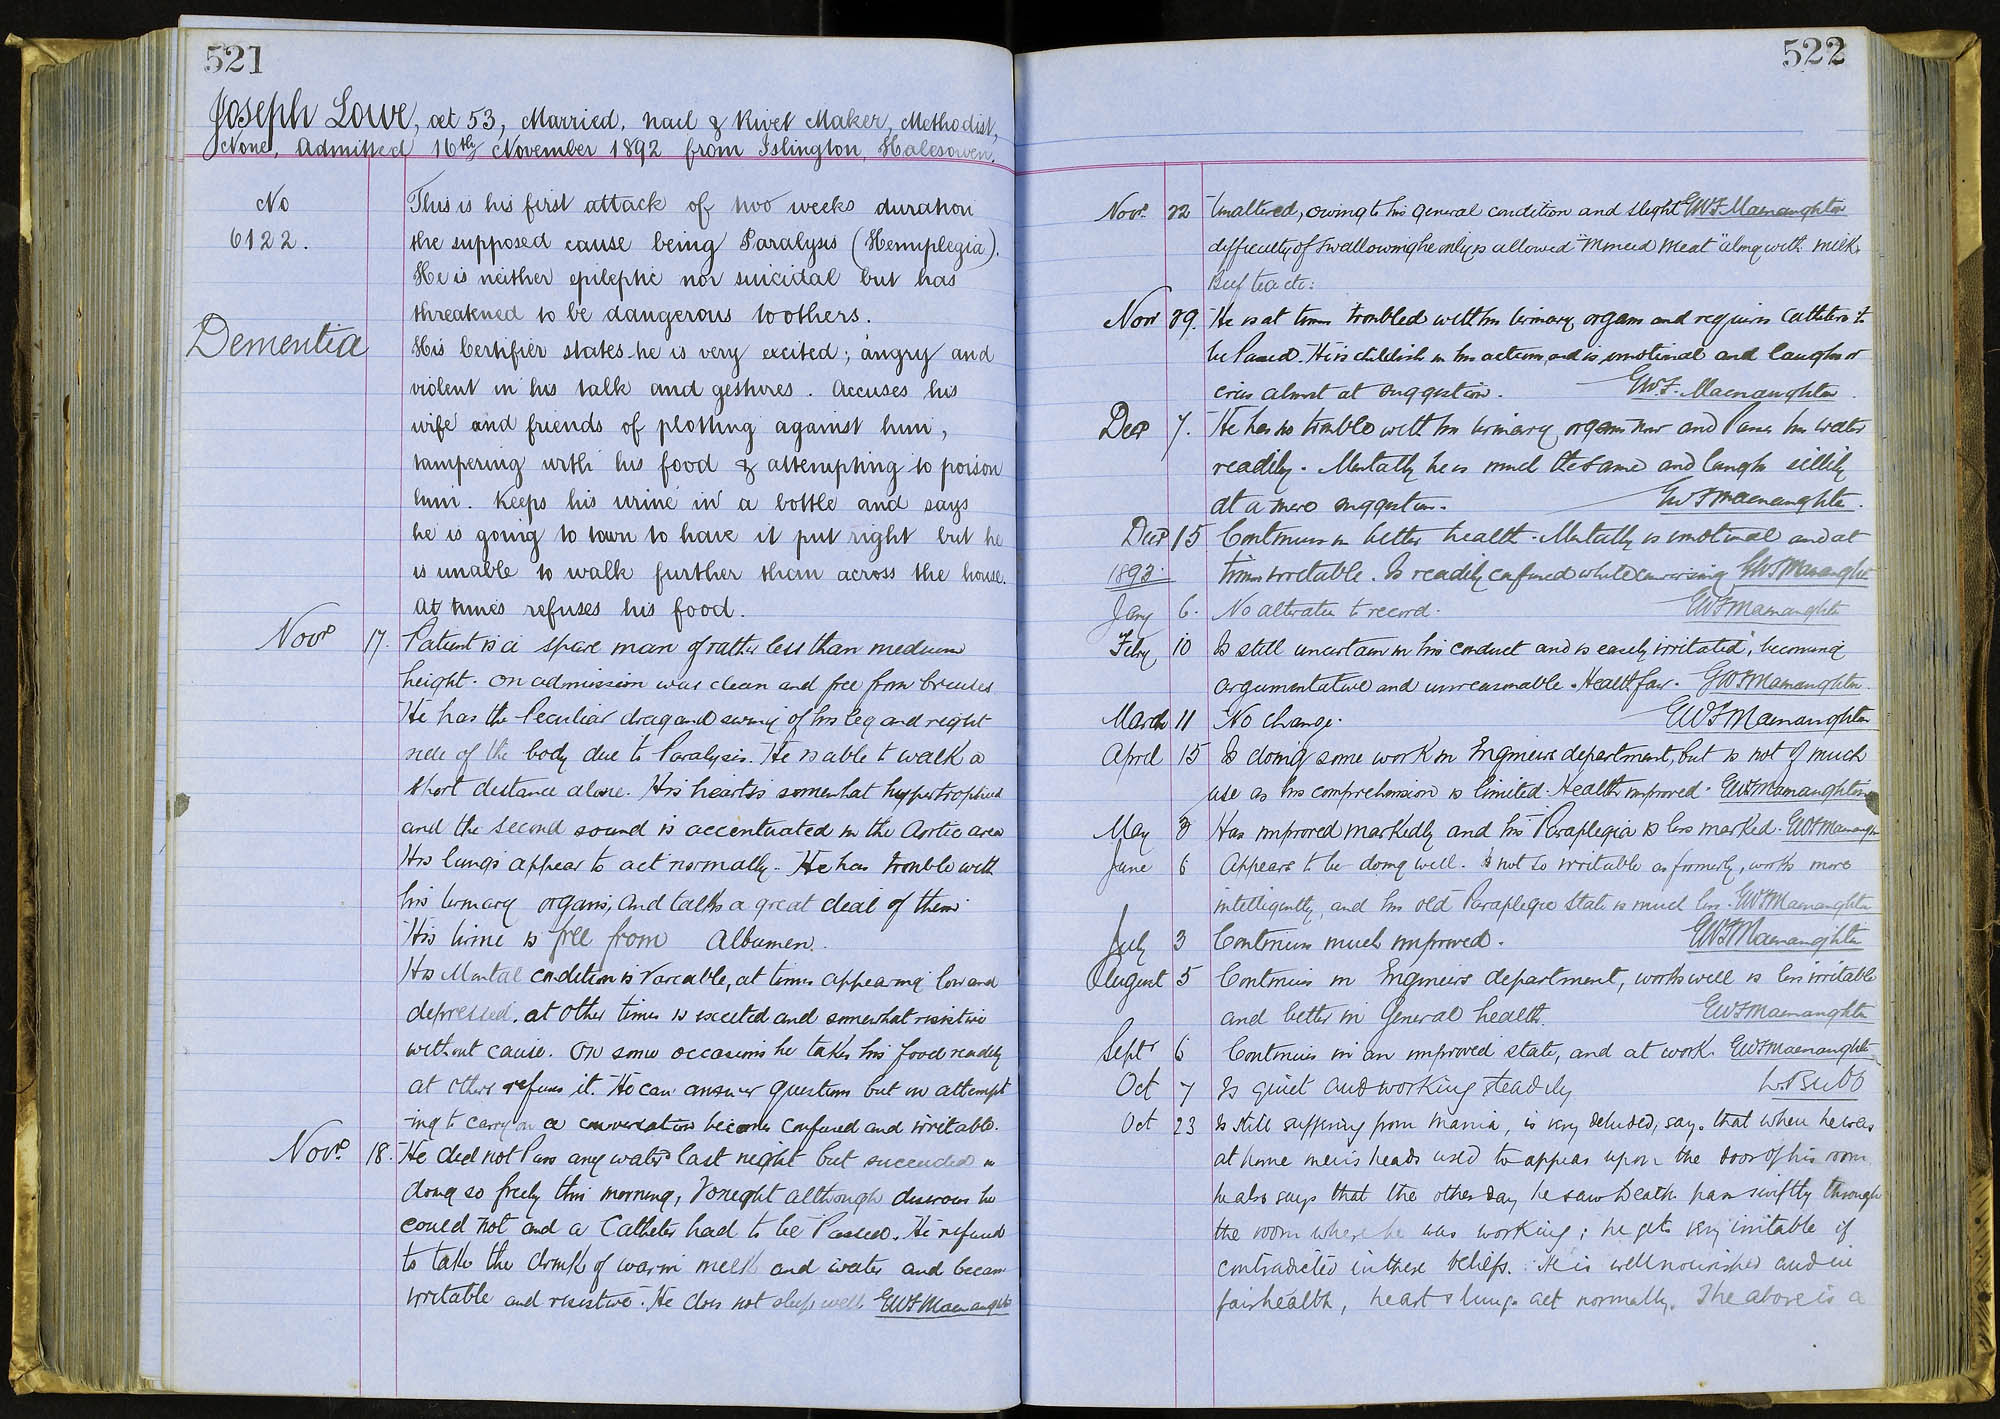 521
Joseph Lowe, aet 53, Married, Nail & Rivet Maker, Methodist,
None, Admitted 16th November 1892 from Islington, Halesowen.
No
6122.
Dementia
This is his first attack of two weeks duration
the supposed cause being Paralysis (Hemiplegia).
He is neither epileptic nor suicidal but has
threatened to be dangerous to others.
His Certifier states he is very excited, angry and
violent in his talk and gestures. Accuses his
wife and friends of plotting against him,
tampering with his food & attempting to poison
him. Keeps his urine in a bottle and says
he is going to town to have it put right but he
is unable to walk further than across the house.
At times refuses his food.
Novr 17. Patient is a spare man of rather less than medium
height. On admission was clean and free from bruises
He has the Peculiar drag and swing of his leg and right
side of the body due to Paralysis. He is able to walk a
short distance alone. His heart is somewhat hypertrophied
and the second sound is accentuated in the Aortic area
His lungs appear to act normally. He has trouble with
his Urinary organs, and talks a great deal of them.
His Urine is free from Albumen.
His Mental condition is Variable, at times appearing low and
depressed, at other times is excited and somewhat resistive
without cause. On some occasions he takes his food readily
at others refuses it. He can answer questions but on attempt
-ing to carry on a conversation becomes Confused and irritable.
Novr. 18. He did not Pass any water last night but succeeded in
doing so freely this morning, Tonight although desirous he
could not and a Catheter had to be Passed. He refused
to take the drink of warm milk and water and became
irritable and resistive. He does not sleep well GWF Macnaughton
522
Novr. 22 Unaltered, owing to his general condition and slight GWF Macnaughton
difficulty of swallowing he only is allowed "Minced Meat" along with milk
Beef tea etc:
Novr 29. He is at times troubled with his Urinary organs and requires Catheter to
be Passed. He is childish in his actions, and is emotional and laughs or
cries almost at suggestion. GWF. Macnaughton.
Decr 7. He has no trouble with his Urinary organs now and Passes his water
readily. Mentally he is much the same and laughs sillily
at a mere suggestion. GWF Macnaughton.
Decr 15 Continues in better health. Mentally is emotional and at
1893. times irritable. Is readily confused while conversing GWF Macnaughton
Jany 6. No alteration to record. GWF Macnaughton
Feby 10 Is still uncertain in his conduct and is easily irritated, becoming
argumentative and unreasonable. Health fair. GWF Macnaughton.
March 11 No change. GWF Macnaughton
April 15 Is doing some work in Engineers department, but is not of much
use as his comprehension is limited. Health improved. GWF Macnaughton
May Has improved markedly and his Paraplegia is less marked. GWF Macnaughton
June 6 Appears to be doing well. Is not so irritable as formerly, works more
intelligently, and his old Paraplegic State is much less. GWF Macnaughton
July 3 Continues much improved. GWF Macnaughton
August 5 Continues in Engineers department, works well is less irritable
and better in General health. GWF Macnaughton
Septr 6 Continues in an improved state, and at work. GWF Macnaughton
Oct 7 Is quiet and working steadily
Oct 23 Is still suffering from mania, is very deluded, says that when he was
at home men's heads used to appear upon the door of his room
he also says that the other day he saw Death pass swiftly through
the room where he was working; he gets very irritable if
contradicted in these beliefs. He is well nourished and in
fair health, heart & lungs act normally. The above is a